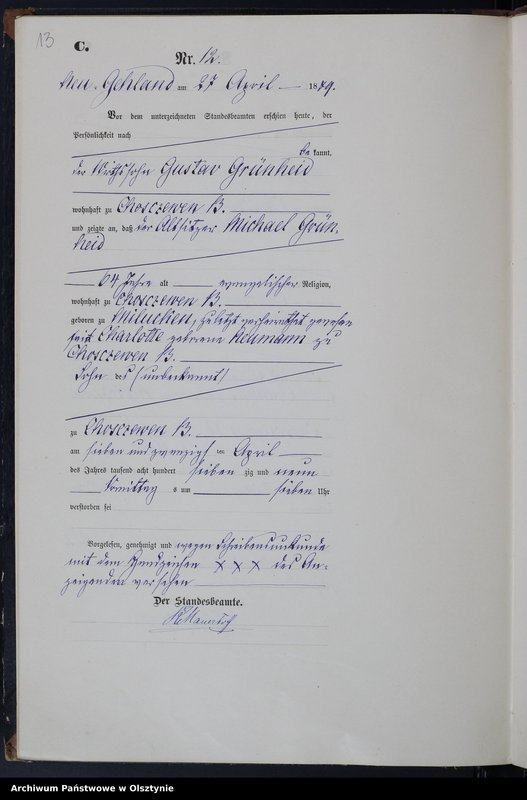 13
C.
Nr. 12.
Neu-Gehland am 27 April 1879.
Vor dem unterzeichneten Standesbeamten erschien heute, der
Persönlichkeit nach
be kannt,
der Wirthssohn Gustav Grünheid
wohnhaft zu Choszewen B.
und zeigte an, daß der Altsitzer Michael Grün-
heid
64 Jahre alt evangelischer Religion,
wohnhaft zu Choszewen B.
geboren zu Miluchen, zuletzt verheirathet gewesen
mit Charlotte geborene Neumann zu
Choszewen B.
Sohn des (unbekannt)
zu Choszewen B.
am sieben und zwanzigst ten April
des Jahres tausend acht hundert sieben zig und neun
Vormittag s um sieben Uhr
verstorben sei
Vorgelesen, genehmigt und wegen Schreibensunkunde
mit dem Handzeichen x x x des An-
zeigenden versehen
Der Standesbeamte.
Archiwum Państwowe w Olsztynie